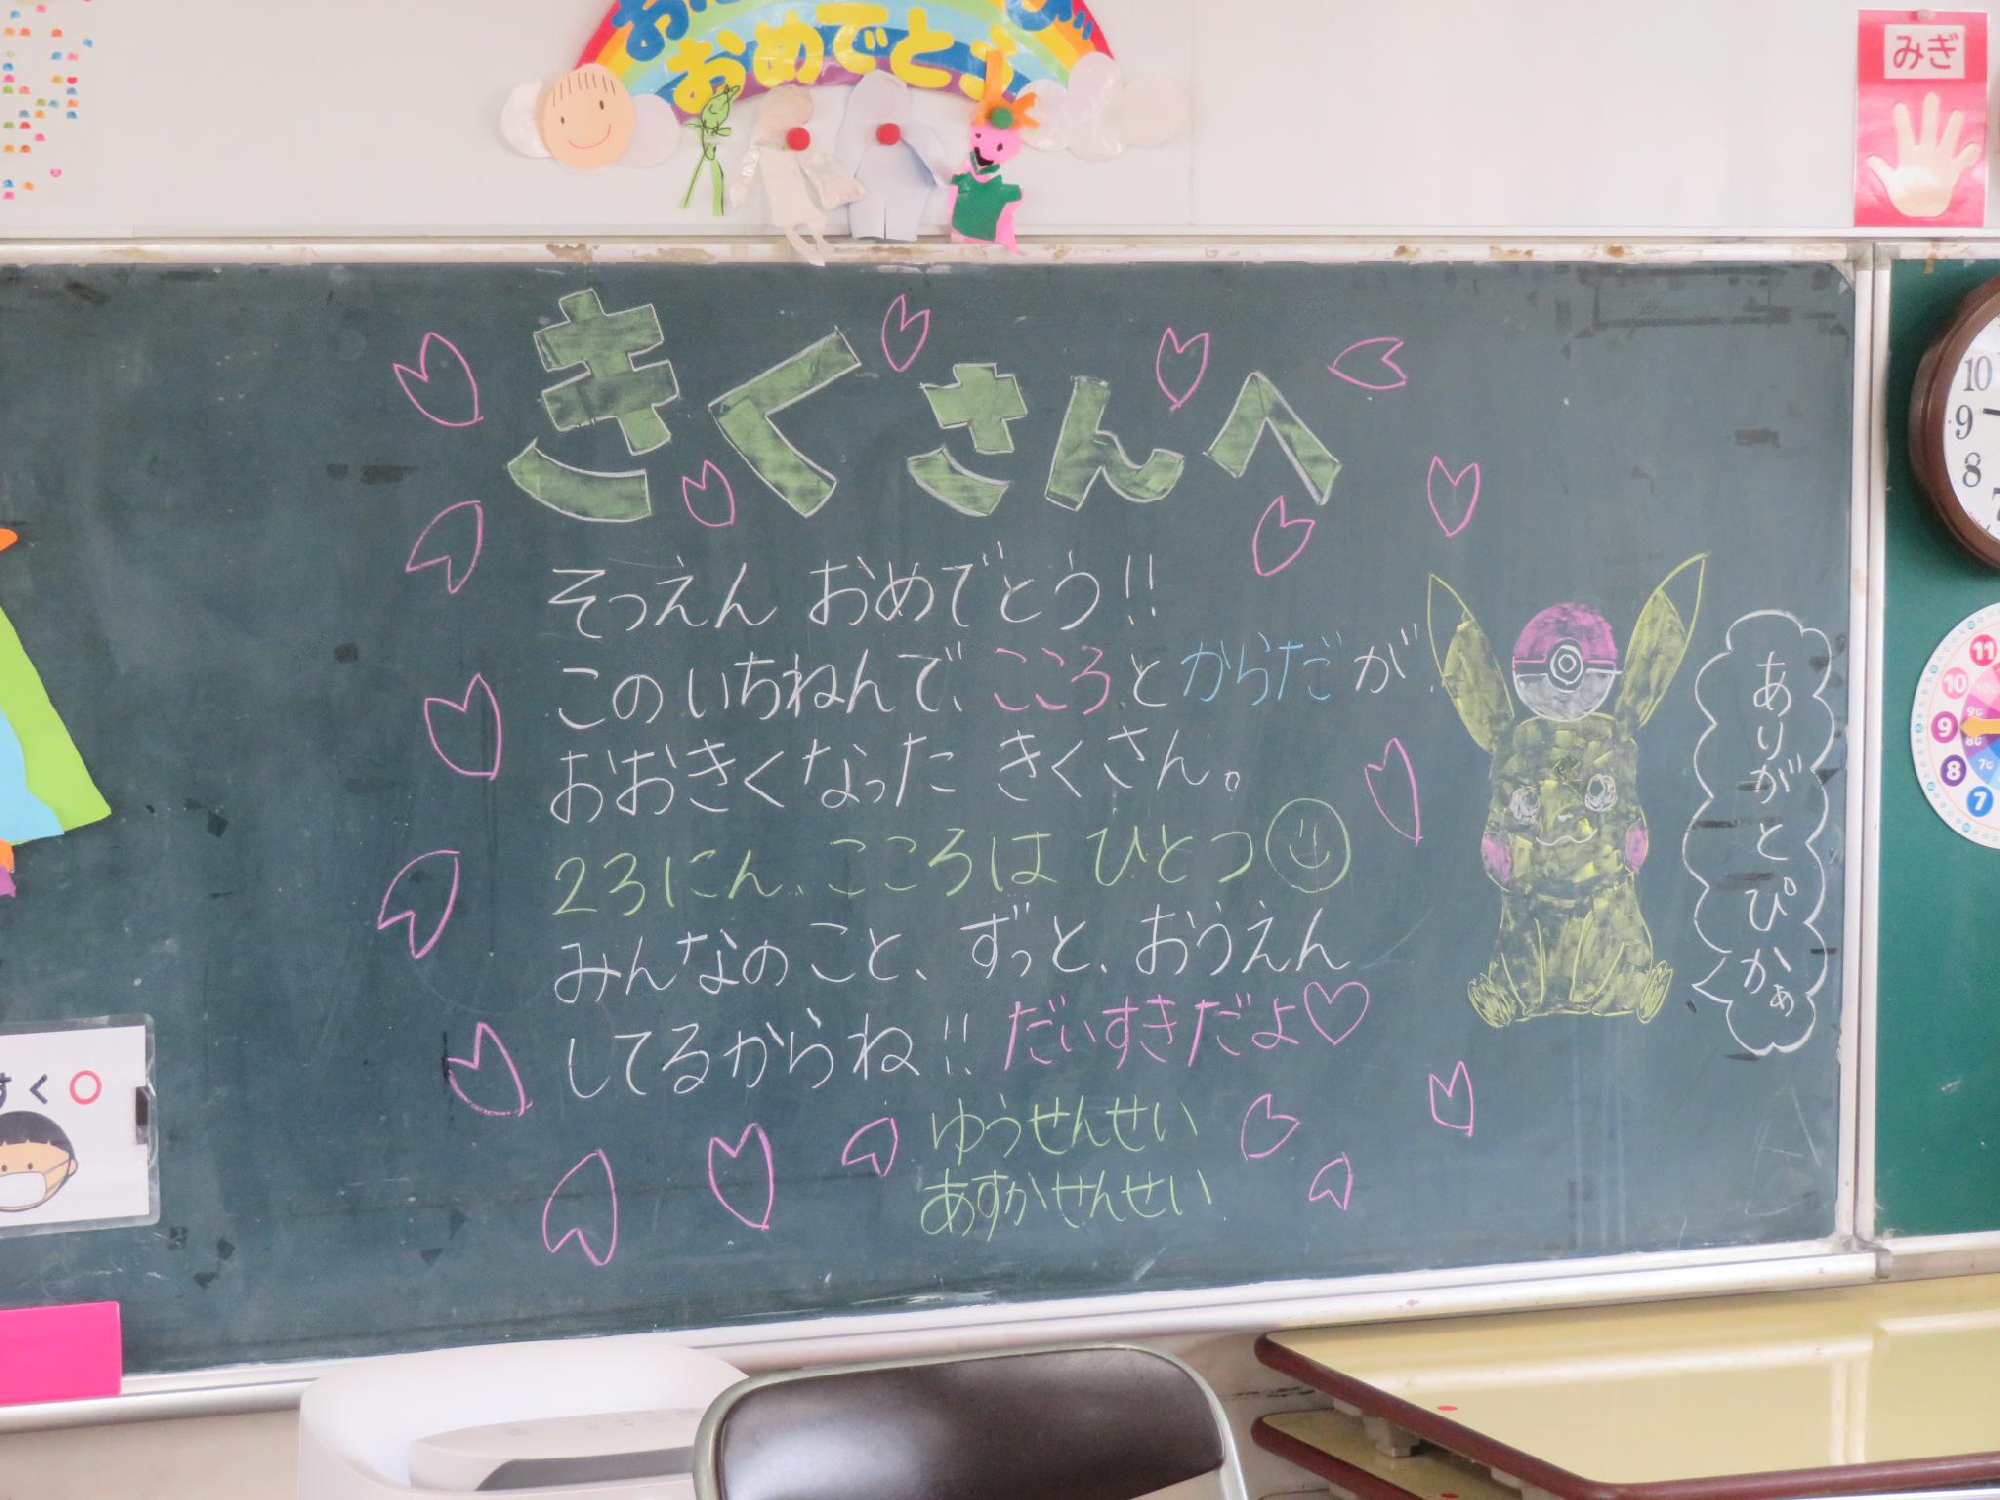 おめでとう
みぎ
きくさんへ
そつえん おめでとう!!
このいちねんで、こころとからだが、
おおきくなった きくさん。
23にん、こころは ひとつ
みんなのこと、ずっと、おうえん
してるからね!! だいすきだよ♡
ゆうせんせい
あすかせんせい
ありがとぴかぁ
10
9
8
7
11
10
9
8
7
すく〇